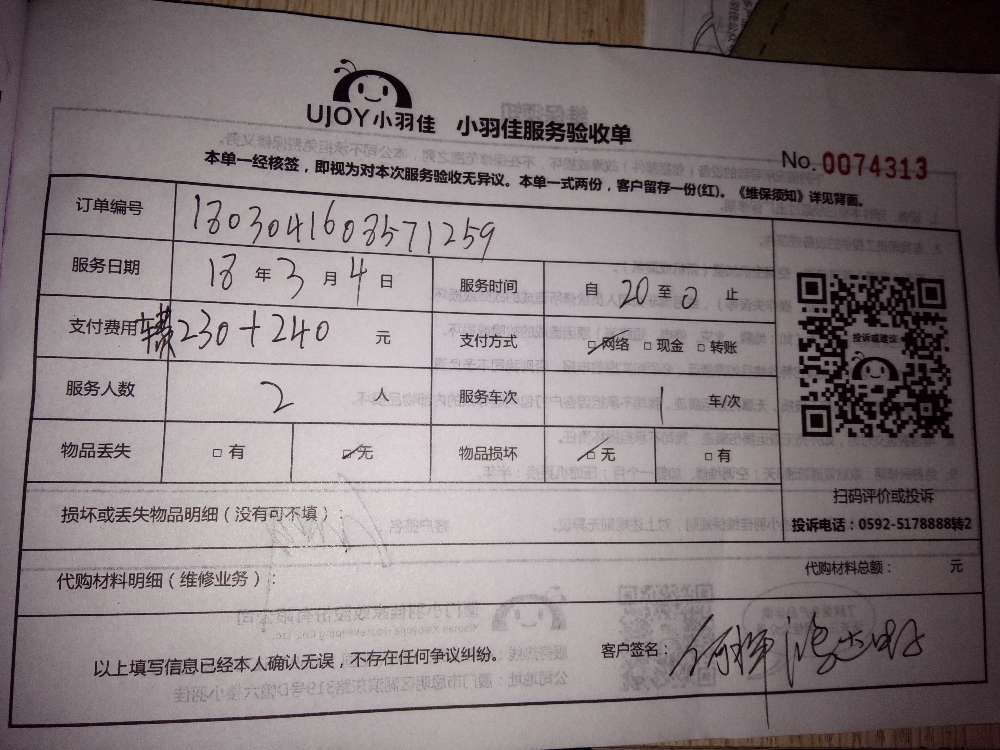 UJOY小羽佳 小羽佳服务验收单
No. 0074313
本单一经核签，即视为对本次服务验收无异议。本单一式两份，客户留存一份(红)。《维保须知》详见背面。
订单编号 1803041608571259
服务日期 18 年 3 月 4 日 服务时间 自 20 至 0 止
支付费用 230+240 元 支付方式 网络 □ 现金 □ 转账
投诉或建议
服务人数 2 人 服务车次 1 车/次
物品丢失 □ 有 无 物品损坏 无 □ 有
扫码评价或投诉
损坏或丢失物品明细（没有可不填）:
投诉电话：0592-5178888转2
代购材料明细（维修业务）: 代购材料总额： 元
以上填写信息已经本人确认无误，不存在任何争议纠纷。 客户签名：